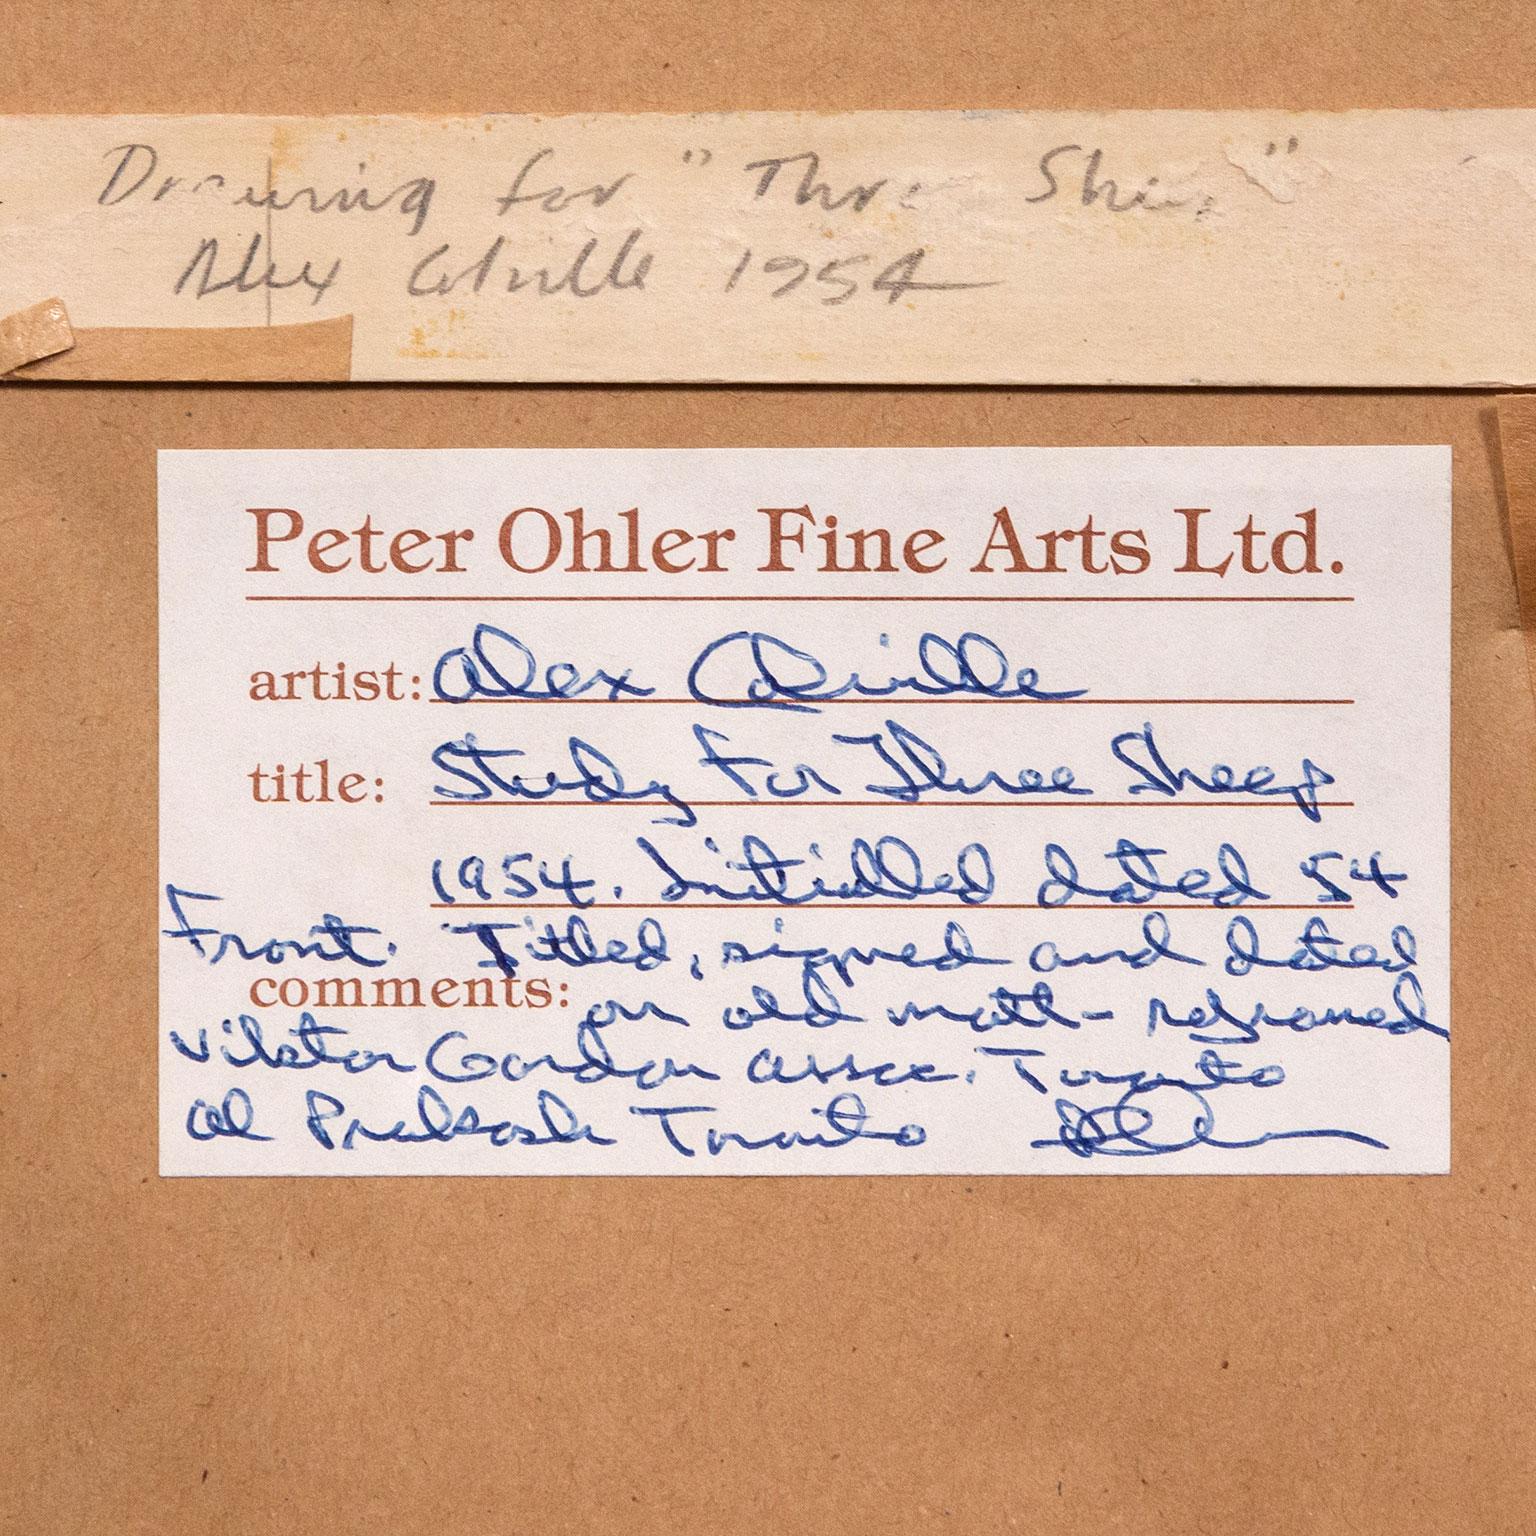 Drawing for "Three Sheep"
Alex Colville 1954
Peter Ohler Fine Arts Ltd.
artist: Alex Colville
title: Study For Three Sheep
1954. Initialled dated 54
Front. Titled, signed and dated
comments: on old matt - reframed
Gordon Assoc. Toronto
Toronto